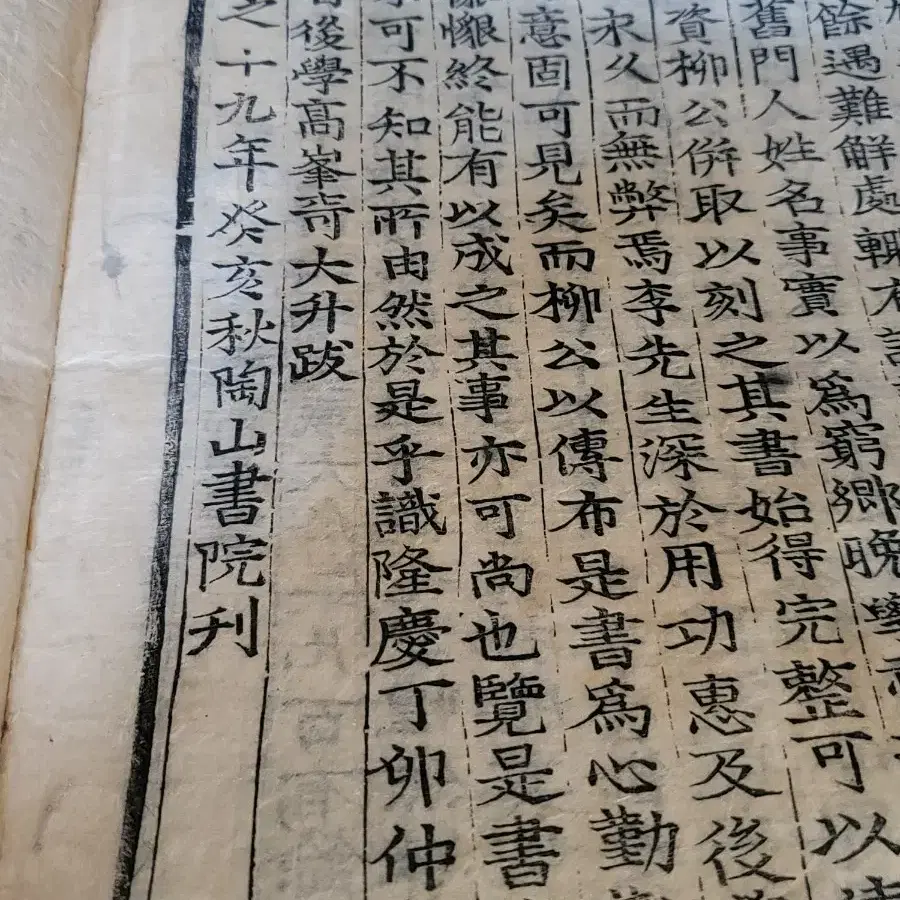 餘遇難解處輒有
舊門人姓名事實以爲窮鄉晚學
資柳公併取以刻之其書始得完整可以
永久而無弊焉李先生深於用功惠及後
意固可見矣而柳公以傳布是書爲心勤
懍終能有以成之其事亦可尚也覽是書
可不知其所由然於是乎識隆慶丁卯仲
後學高峯奇大升跋
之十九年癸亥秋陶山書院刊